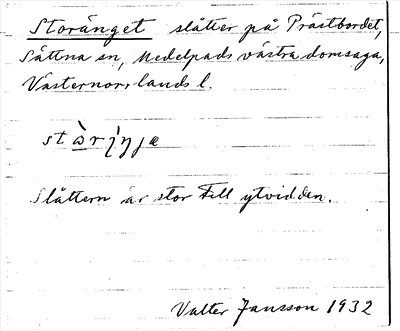 Storänget slåtter på Prästbordet,
Sättna sn, Medelpads västra domsaga,
Västernorrlands l.
Slåttern är stor till ytvidden.
Valter Jansson 1932